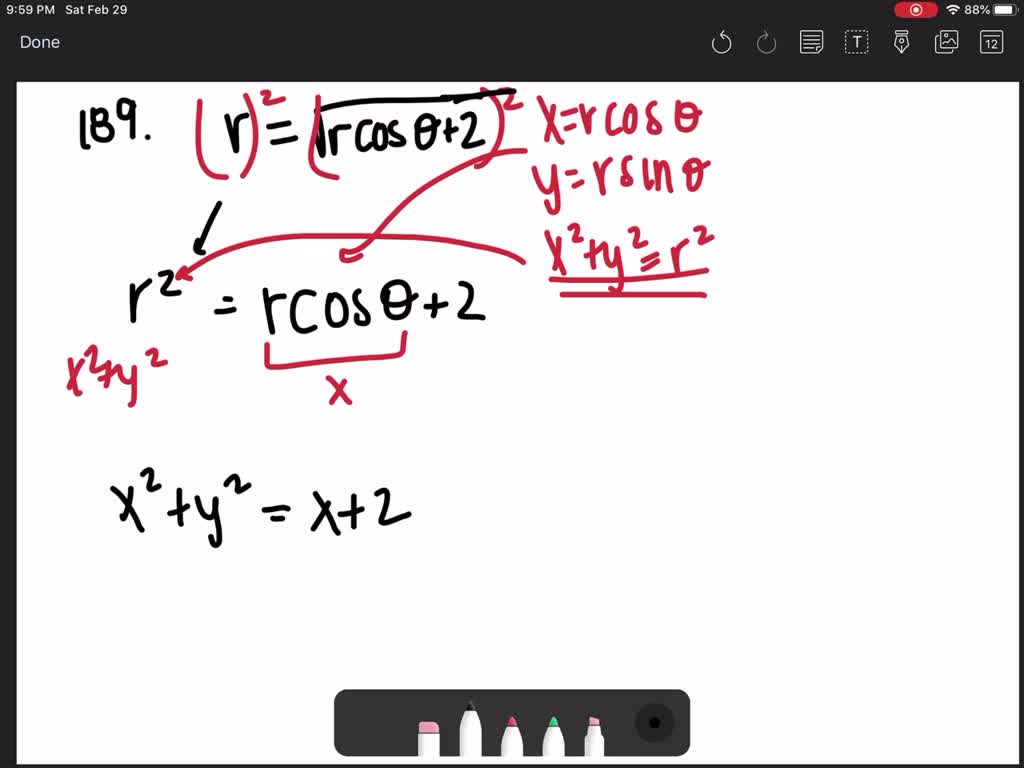 9:59 PM Sat Feb 29 88%
Done T 12
189. (r)² = (√rcosθ+2)² x=rcosθ
y=rsinθ
x²+y²=r²
r² = rcosθ+2
x²+y² x
x²+y² = x+2